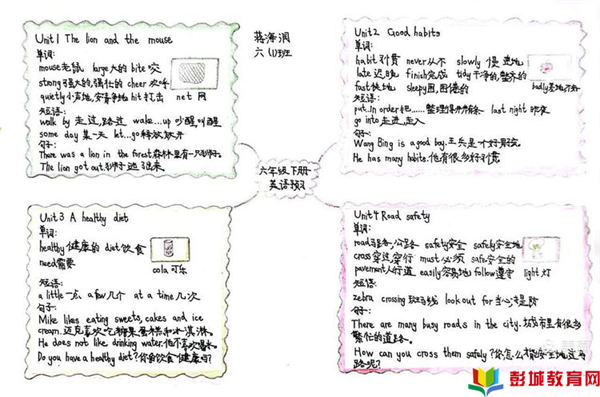 Unit 1 The lion and the mouse
单词:
mouse老鼠 large大的 bite 咬
strong强大的,强壮的 cheer 欢呼
quietly小声地,安静地 hit打击 net 网
短语:
walk by 走过,路过 wake...up 吵醒,叫醒
some day 某一天 let...go释放,放开
句子:
There was a lion in the forest.森林里有一只狮子。
The lion got out.狮子逃出来。
六(1)班
Unit2 Good habits
单词:
habit习惯 never从不 slowly 慢慢地
late 迟,晚 finish完成 tidy干净的,整齐的
fast快地 sleepy困,困倦的 badly差地,不好
短语:
put...in order把……整理得井井有条 last night 昨夜
go into走进,走入
句子:
Wang Bing is a good boy.王兵是个好男孩。
He has many habits.他有很多好习惯。
六年级下册
英语预习
Unit3 A healthy diet
单词:
healthy健康的 diet饮食
need需要
cola 可乐
短语:
a little一点 a few几个 at a time几次
句子:
Mike likes eating sweets, cakes and ice
cream.迈克喜欢吃糖果蛋糕和冰淇淋。
He does not like drinking water.他不喜欢喝水。
Do you have a healthy diet?你的饮食健康吗?
Unit4 Road safety
单词:
road马路,公路 safety安全 safely安全地
cross穿过,穿行 must 必须 safe安全的
pavement人行道 easily容易地 follow遵守 light 灯
短语:
zebra crossing 斑马线 look out for 当心,提防
句子:
There are many busy roads in the city.城市里有很多
繁忙的道路。
How can you cross them safely?你怎么样安全地过马
路呢?
彭城教育网